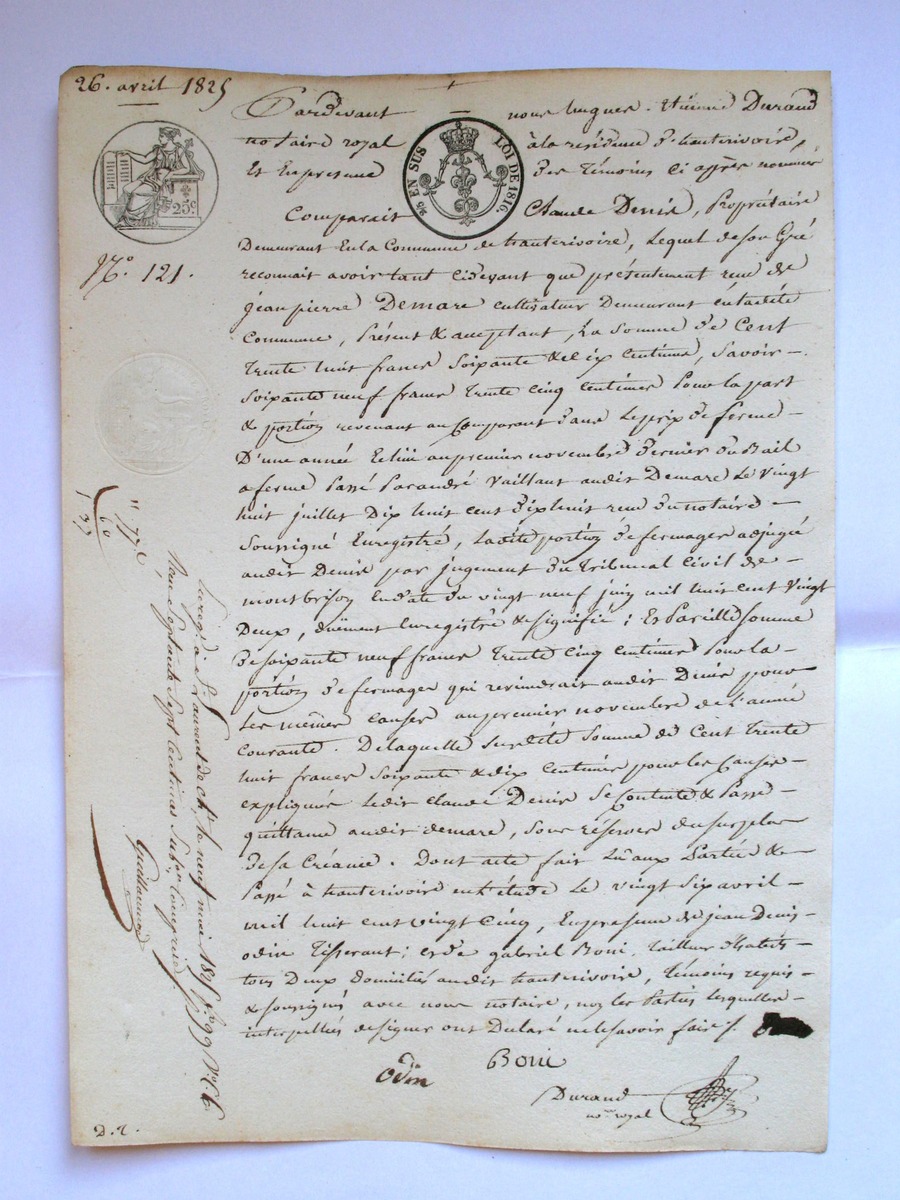 26. avril 1825
Pardevant nous hugues-étienne Durand
notaire royal à la résidence d'hauterivoire,
Et En presence des Témoins Ci après nommés
25 EN SUS LOI DE 1816.
25c
Comparait Claude Denis, Propriétaire
Demeurant En la Commune de hauterivoire, Lequel de son Gré
reconnait avoir tant Cidevant que présentement reçu de
jean pierre Demare cultivateur Demeurant en ladite
Commune, présent & acceptant, La Somme de Cent
trente huit francs Soixante & dix Centimes, Savoir -
Soixante neuf francs Trente Cinq Centimes Pour la part
& portion revenant au Comparant dans Le prix de ferme -
D'une année Echue au premier novembre dernier du Bail
a ferme Passé Par andré Vaillant audit Demare Le vingt
huit juillet Dix huit cent dix huit reçu du notaire -
Soussigné Enregistré, Ladite portion de fermages adjugée
audit Denis par jugement du Tribunal Civil de -
montbrison En date du vingt neuf juin mil huit cent vingt
Deux, duëment Enregistré & signifié ; Et Pareille somme
de soixante neuf francs Trente Cinq Centimes Pour la -
portion de fermages qui reviendrait audit Denis pour
Les mêmes Causes au premier novembre de l'année
Courante. De laquelle Susdite Somme de Cent Trente
huit francs Soixante & dix Centimes pour les Causes -
expliquées Ledit Claude Denis Se Contente & Passe
quittance audit demare, Sous réserves du surplus
de sa Créance. Dont acte fait Lu aux Parties &
Passé à hauterivoire en l'étude Le vingt Six avril -
mil huit cent vingt Cinq, En presence de jean Denis
odin Tisserant ; et de gabriel Boni, Tailleur d'habits -
tous Deux domiciliés audit hauterivoire, Témoins requis
& soussignés avec nous notaire, non les Parties lesquelles -
interpellées de signer ont Déclaré ne le savoir faire /.
Odin
Boni
Durand
nore royal
No. 121.
" 77 c
60
1 37
Enregé à St Laurent de Ch. le neuf mai 1825 fo 99 Vo C 6
Reçu Septante Sept Centimes Subon Compris
Guillarmod
D. R.